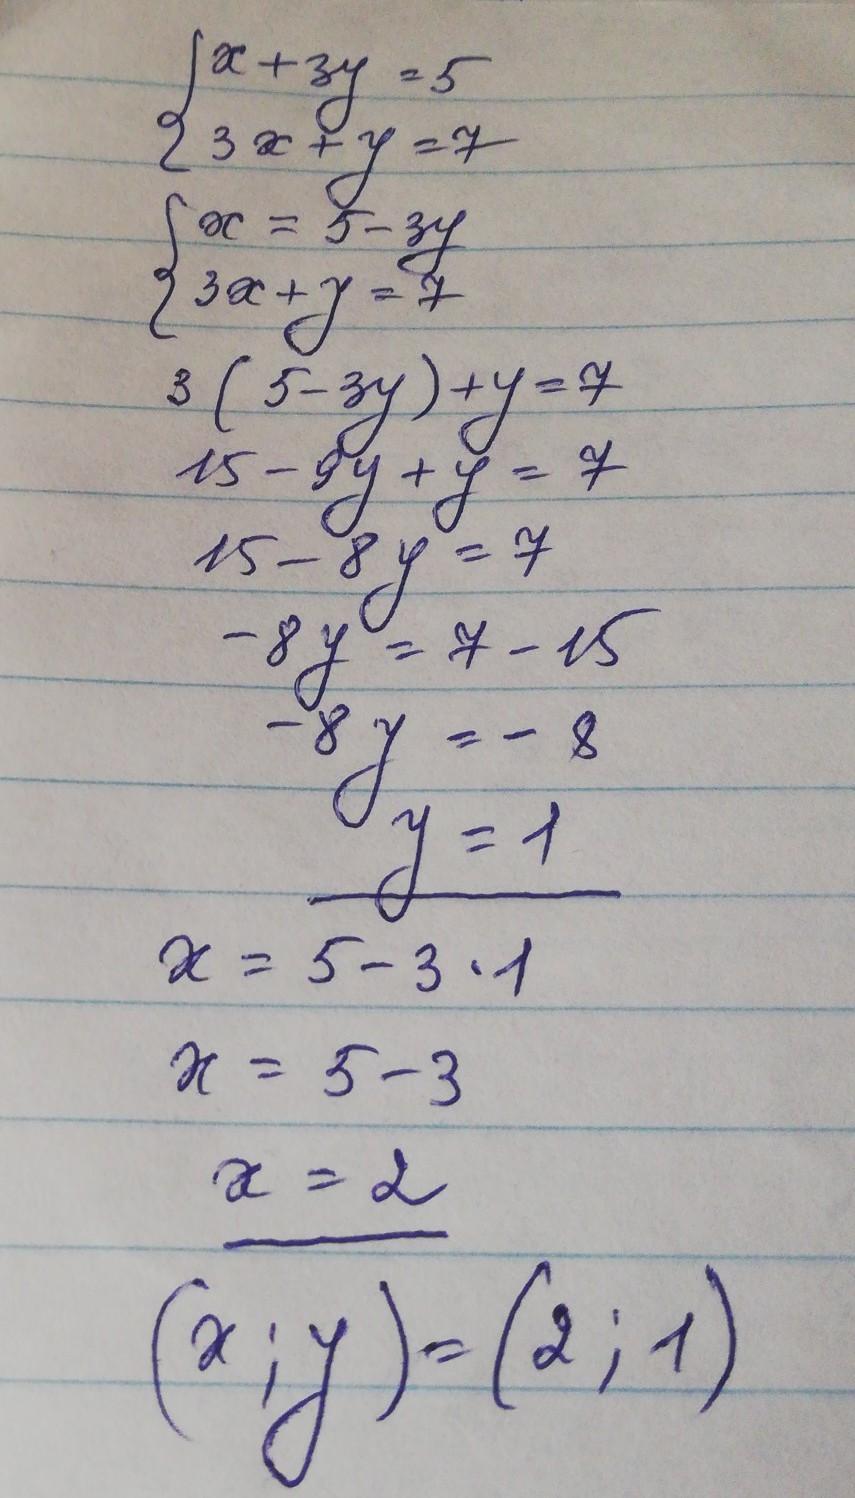 {x+3y=5
{3x+y=7
{x=5-3y
{3x+y=7
3(5-3y)+y=7
15-9y+y=7
15-8y=7
-8y=7-15
-8y=-8
y=1
x=5-3·1
x=5-3
x=2
(x;y)=(2;1)